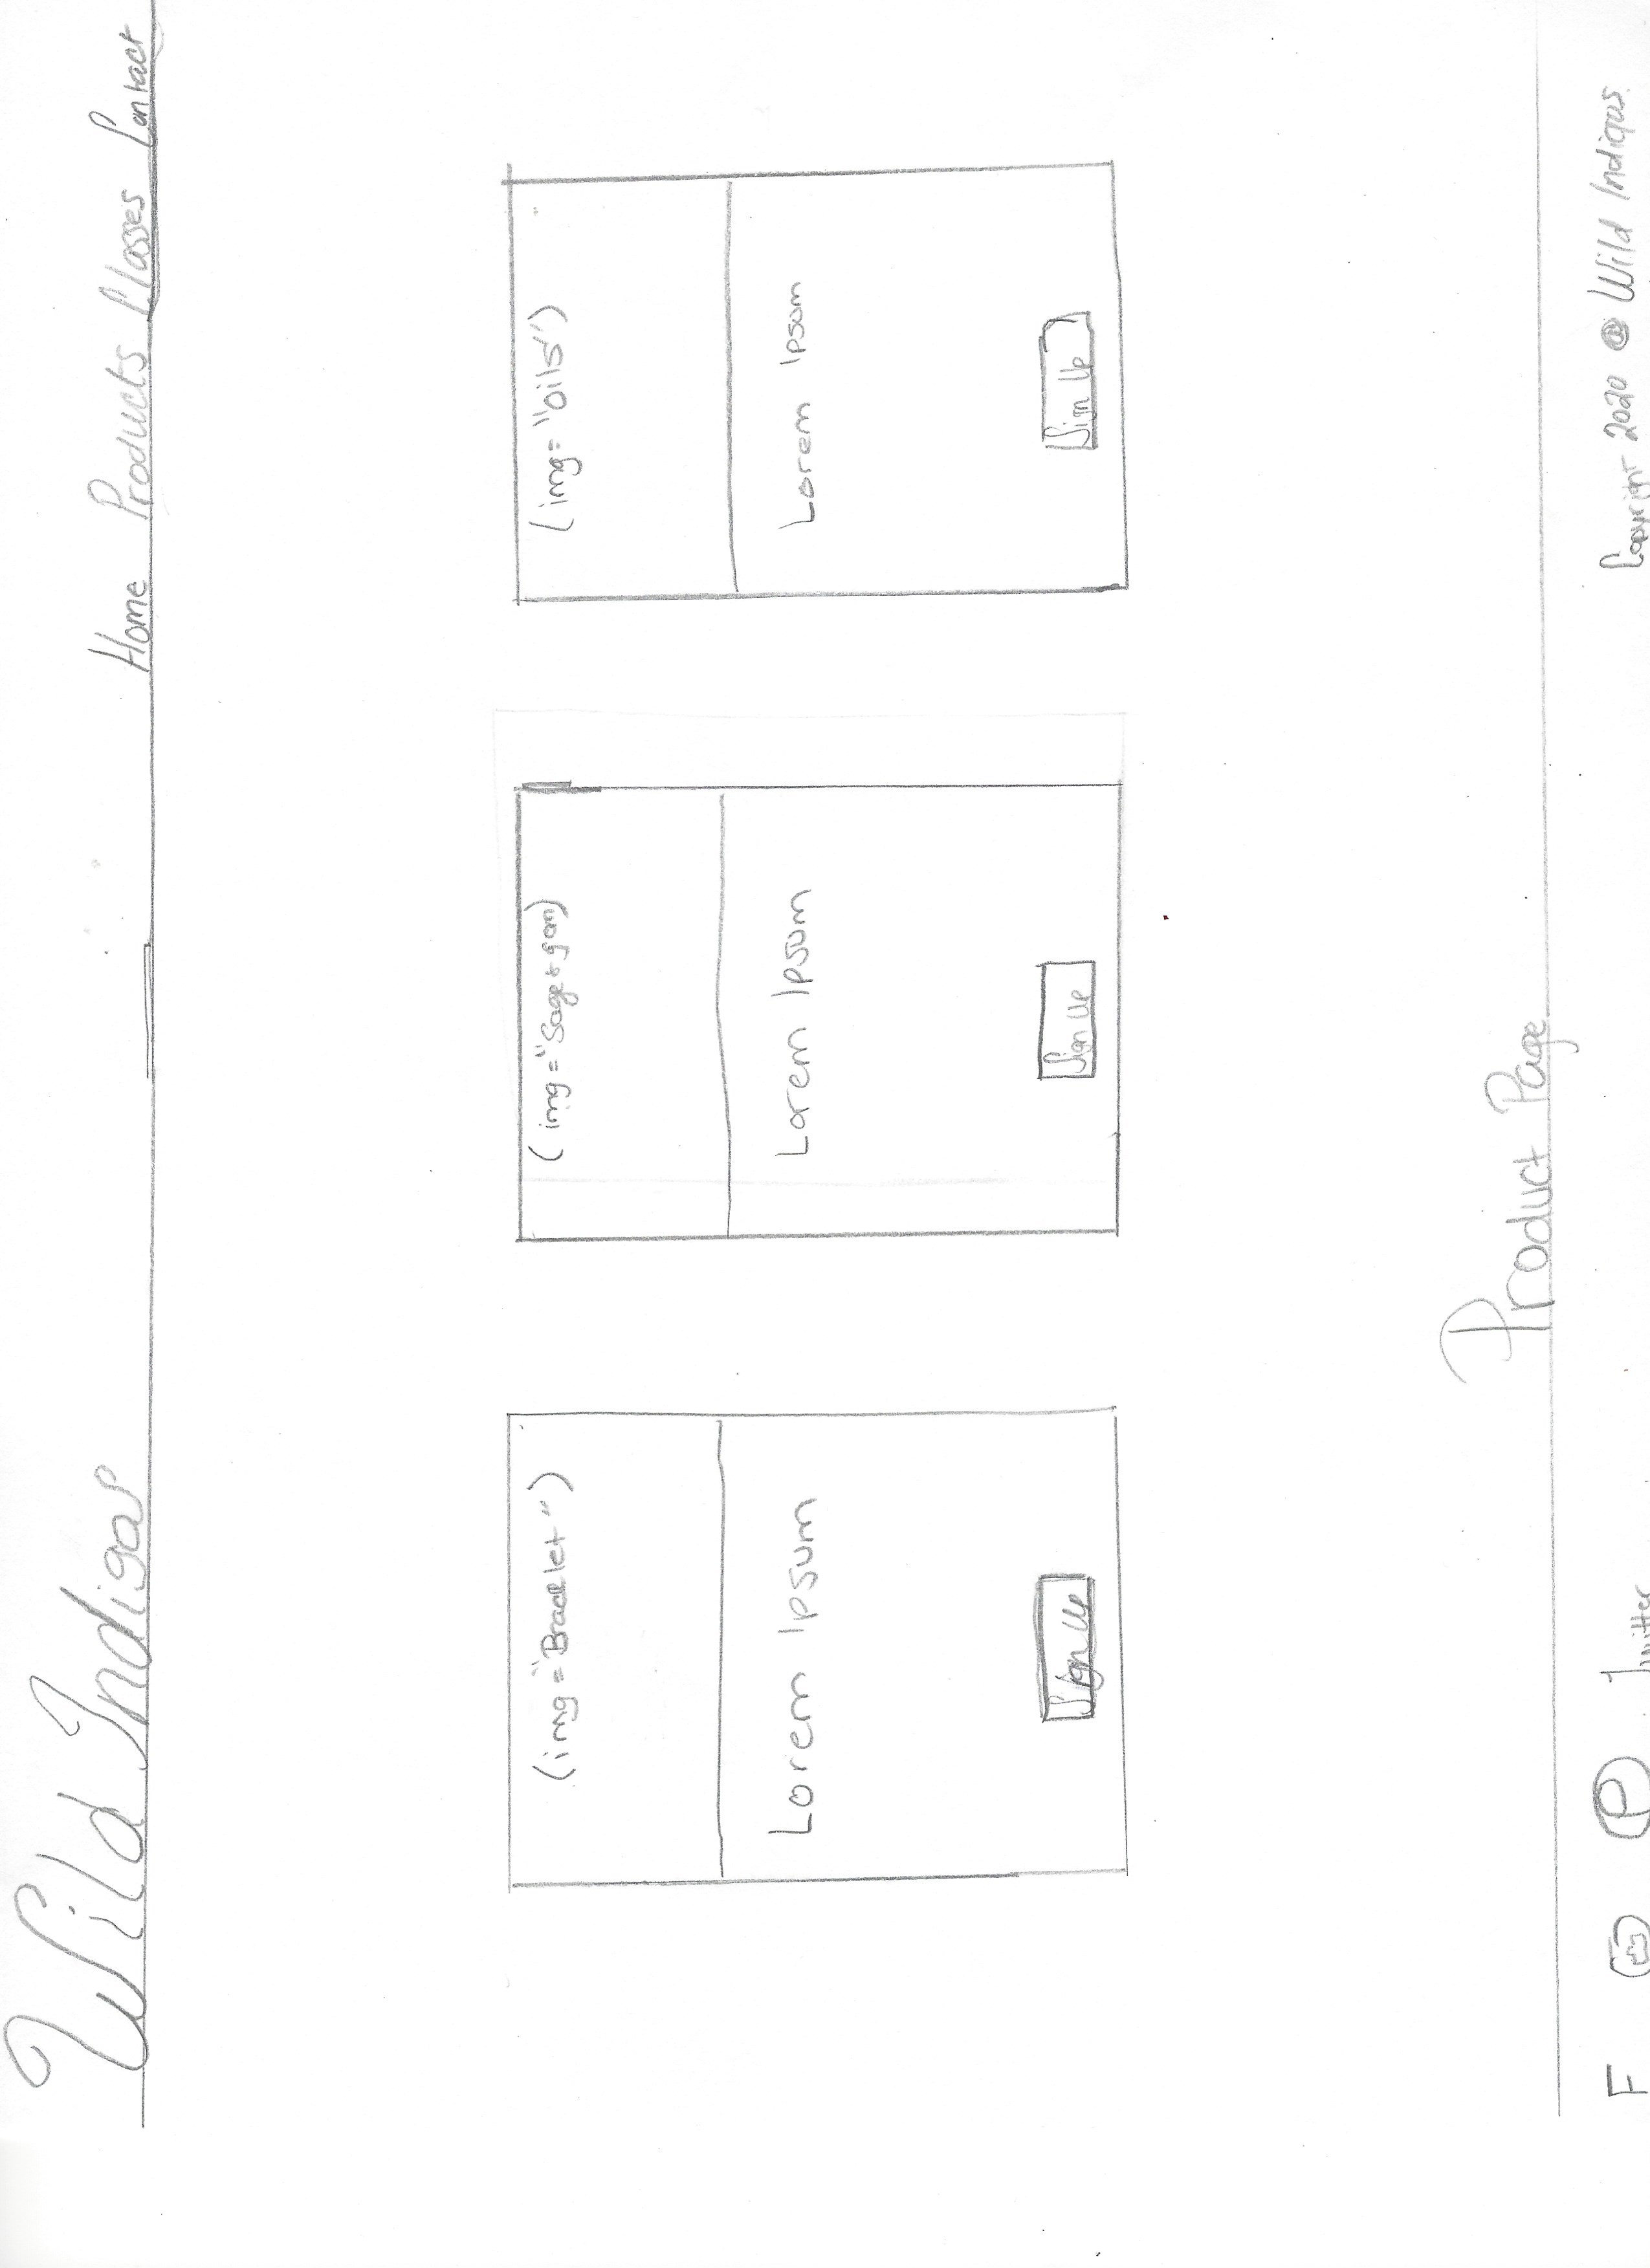 Wild Indigos
Home Products Classes Contact
(img="Bracelet")
Lorem Ipsum
Sign Up
(img="Sage + gem)
Lorem Ipsum
Sign Up
(img="Oils")
Lorem Ipsum
Sign Up
Product Page
F P Twitter Copyright 2020 @ Wild Indigos